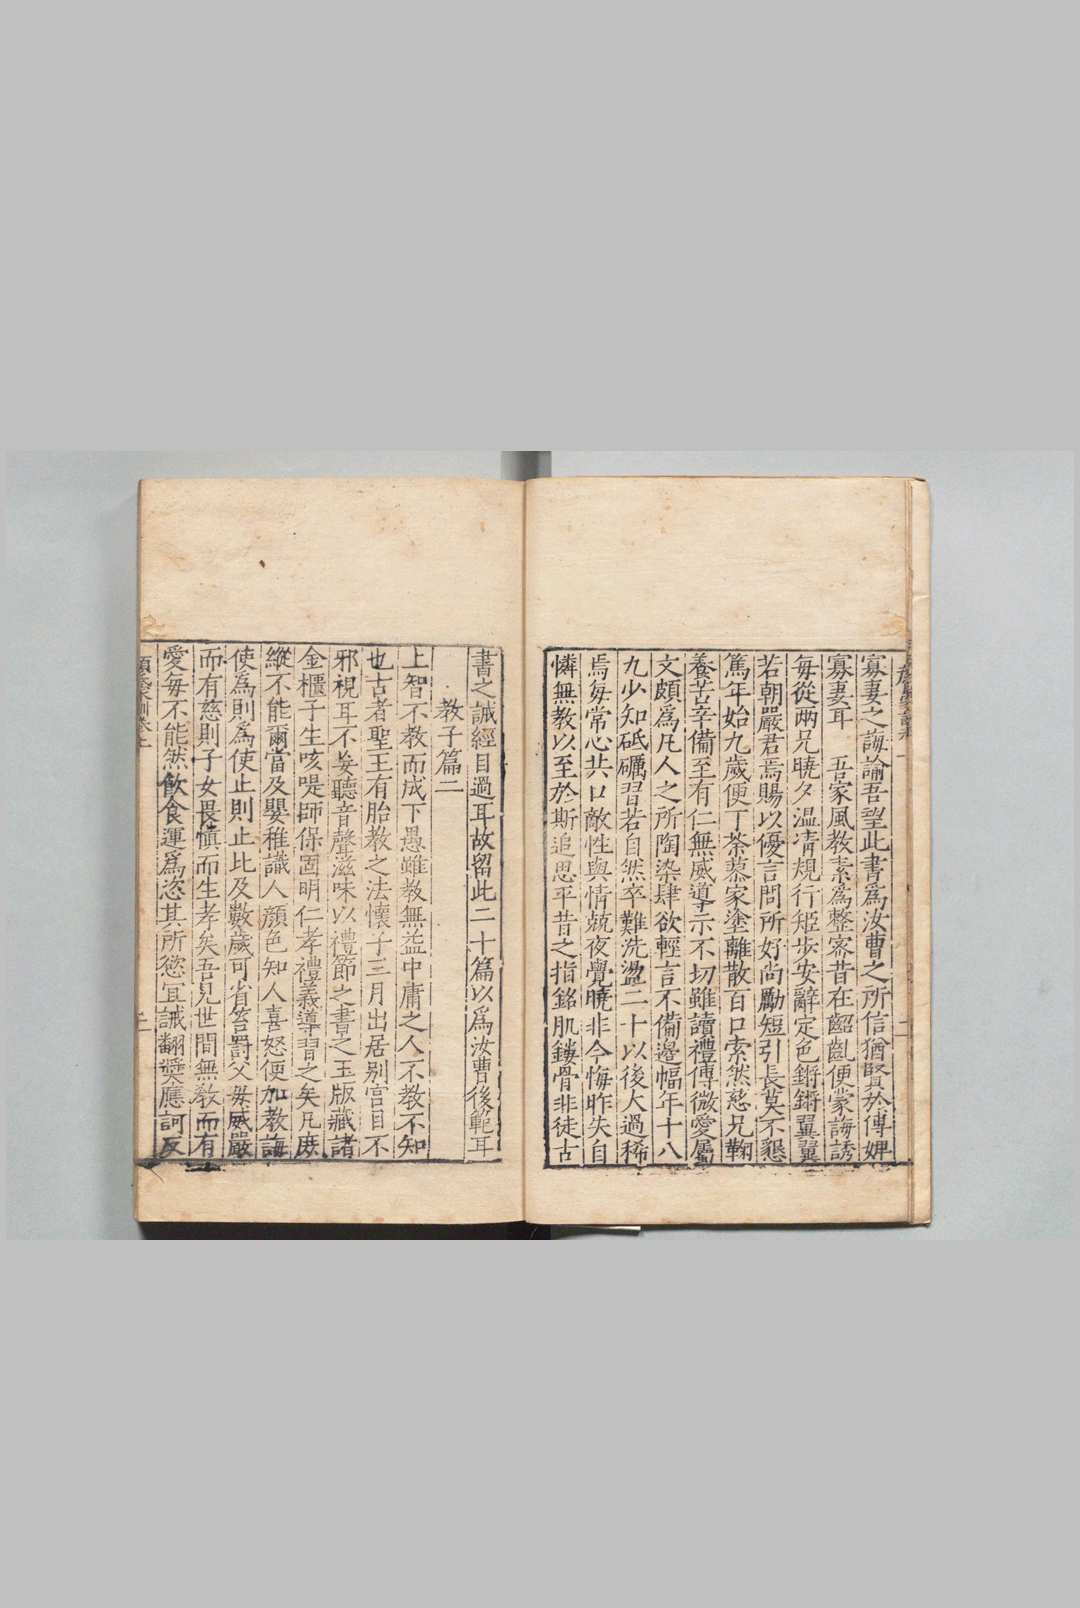 寡妻之誨諭吾望此書爲汝曹之所信猶賢於傅婢
寡妻耳　吾家風教素爲整密昔在齠齔便蒙誨誘
每從兩兄曉夕溫凊規行矩步安辭定色鏘鏘翼翼
若朝嚴君焉賜以優言問所好尚勵短引長莫不懇
篤年始九歲便丁荼蓼家塗離散百口索然慈兄鞠
養苦辛備至有仁無威導示不切雖讀禮傳微愛屬
文頗爲凡人之所陶染肆欲輕言不備邊幅年十八
九少知砥礪習若自然卒難洗盪二十以後大過稀
焉每常心共口敵性與情競夜覺曉非今悔昨失自
憐無教以至於斯追思平昔之指銘肌鏤骨非徒古
書之誡經目過耳故留此二十篇以爲汝曹後範耳
教子篇二
上智不教而成下愚雖教無益中庸之人不教不知
也古者聖王有胎教之法懷子三月出居別宮目不
邪視耳不妄聽音聲滋味以禮節之書之玉版藏諸
金櫃子生咳㖷師保固明仁孝禮義導習之矣凡庶
縱不能爾當及嬰稚識人顏色知人喜怒便加教誨
使爲則爲使止則止比及數歲可省笞罰父母威嚴
而有慈則子女畏慎而生孝矣吾見世間無教而有
愛每不能然飲食運爲恣其所慾宜誡翻奬應訶反
顏氏家訓卷上
二